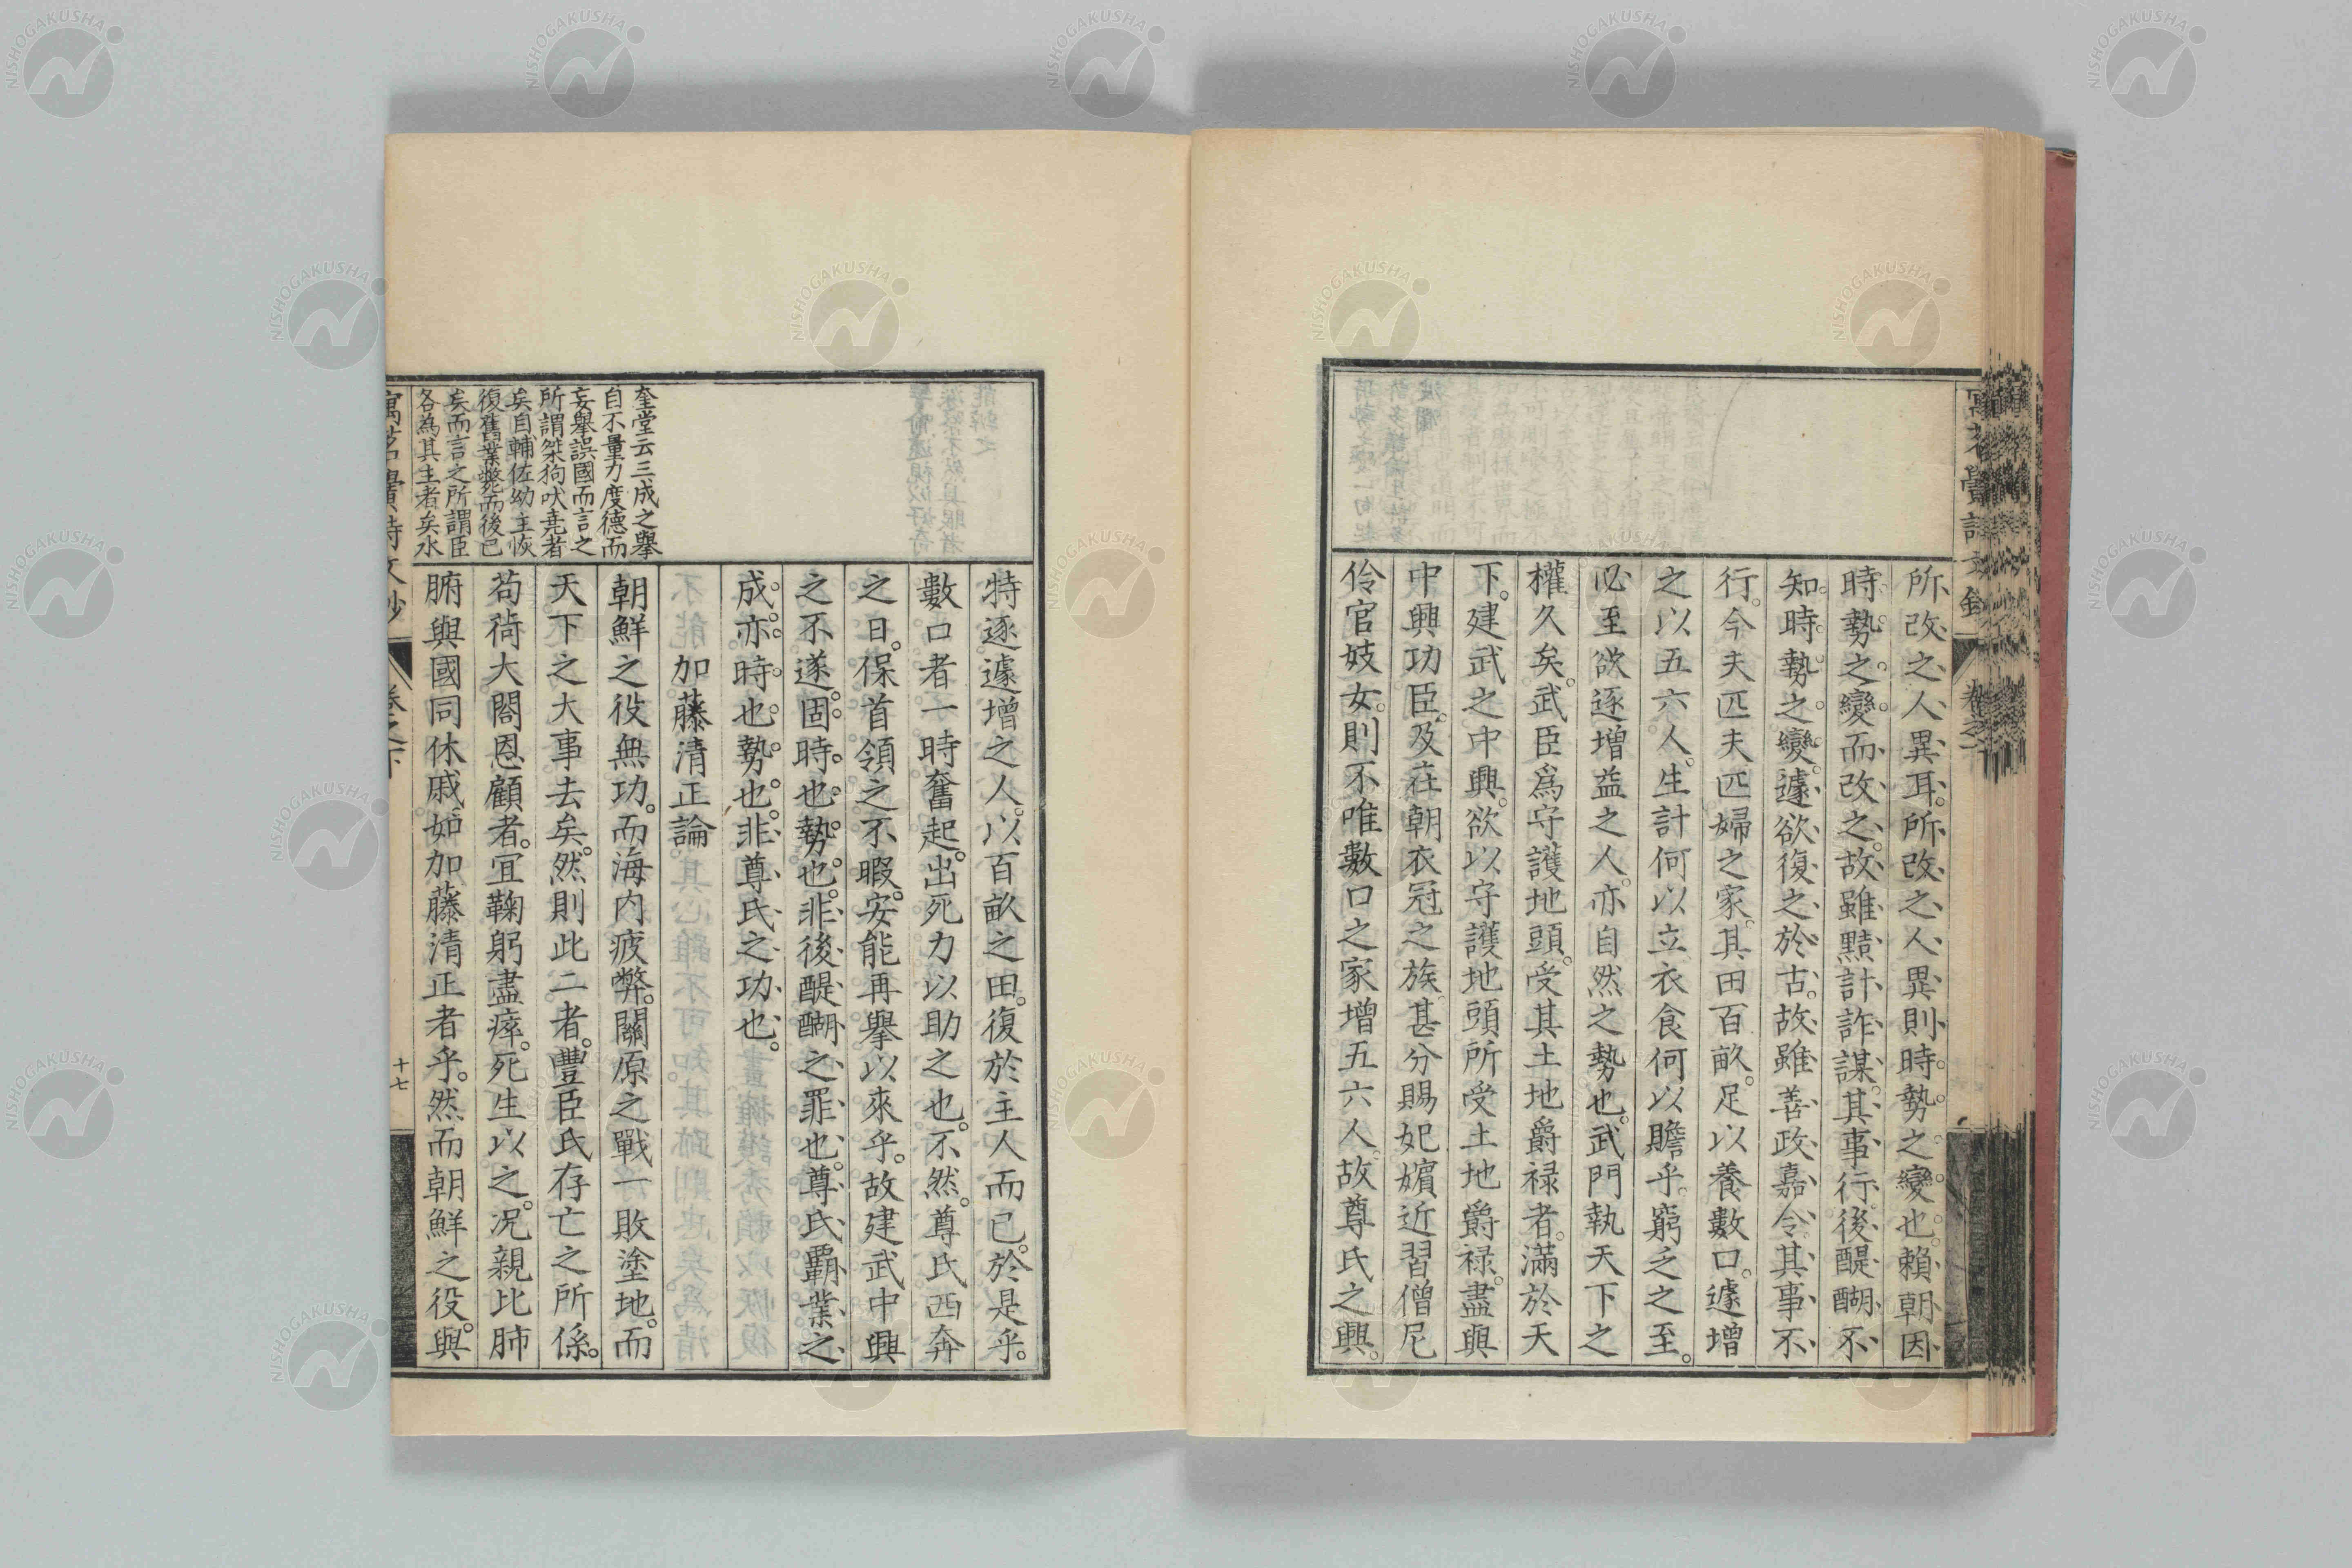 所改之人異耳。所改之人異則時勢之變也。賴朝因
時勢之變而改之。故雖黠計詐謀。其事行。後醍醐不
知時勢之變。遽欲復之於古。故雖善政嘉令。其事不
行。今夫匹夫匹婦之家。其田百畝。足以養數口。遽增
之以五六人。生計何以立衣食何以贍乎。窮乏之至。
必至欲逐增益之人。亦自然之勢也。武門執天下之
權久矣。武臣爲守護地頭。受其土地爵祿者。滿於天
下。建武之中興。欲以守護地頭所受土地爵祿。盡與
中興功臣。及在朝衣冠之族。甚分賜妃嬪近習僧尼
伶官妓女。則不唯數口之家增五六人。故尊氏之興。
特逐遽增之人。以百畝之田。復於主人而已。於是乎。
數口者一時奮起。出死力以助之也。不然。尊氏西奔
之日。保首領之不暇。安能再擧以來乎。故建武中興
之不遂。固時也。勢也。非後醍醐之罪也。尊氏覇業之
成。亦時也。勢也。非尊氏之功也。
加藤清正論
奎堂云三成之擧
自不量力度德而
妄擧誤國而言之
所謂桀狗吠堯者
矣自輔佐幼主恢
復舊業斃而後已
矣而言之所謂臣
各為其主者矣水
朝鮮之役無功。而海内疲弊。關原之戰一敗塗地。而
天下之大事去矣。然則此二者。豐臣氏存亡之所係。
苟荷大閤恩顧者。宜鞠躬盡瘁。死生以之。况親比肺
腑與國同休戚。如加藤清正者乎。然而朝鮮之役。與
卷之下
十七
NISHOGAKUSHA